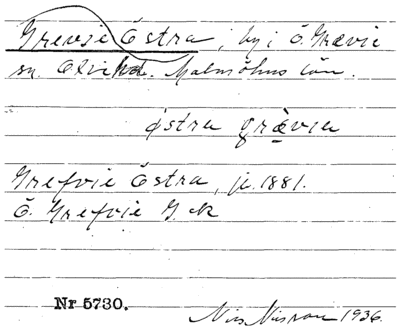 Grevie Östra, by i Ö. Grevie
sn. Oxie hd. Malmöhus län.
östra grèvia
Grefvie Östra, jr. 1881.
Ö. Grefvie G. sk
Nr 5730. Nils Nilsson 1936.